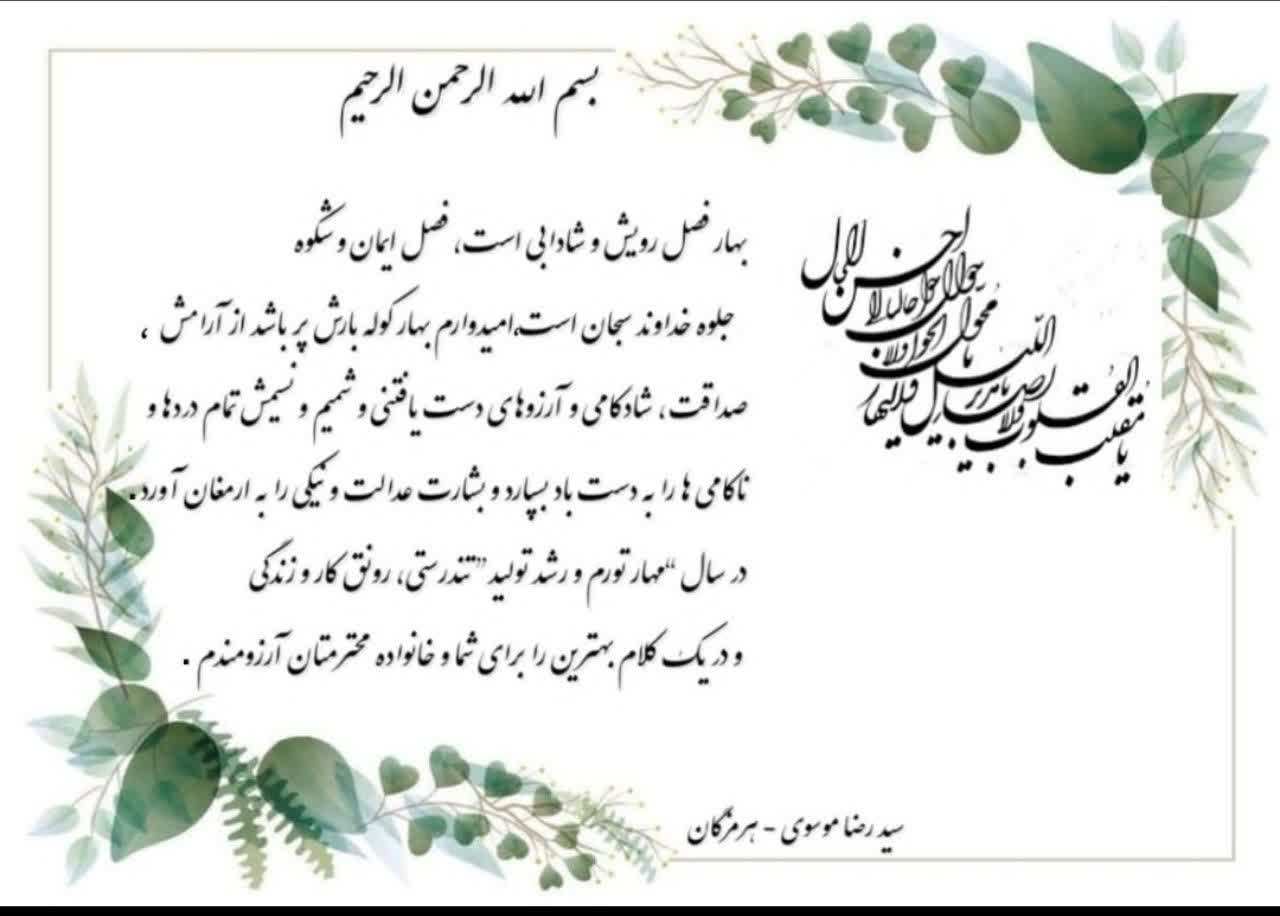 بسم الله الرحمن الرحیم
یا مقلب القلوب و الابصار
یا مدبر اللیل و النهار
یا محول الحول و الاحوال
حول حالنا الی احسن الحال
بهار فصل رویش و شادابی است، فصل ایمان و شکوه
جلوه خداوند سبحان است،امیدوارم بهار کوله بارش پر باشد از آرامش ،
صداقت، شادکامی و آرزوهای دست یافتنی و شمیم و نسیمش تمام دردها و
ناکامی ها را به دست باد بسپارد و بشارت عدالت و نیکی را به ارمغان آورد.
در سال “مهار تورم و رشد تولید” تندرستی، رونق کار و زندگی
و در یک کلام بهترین را برای شما و خانواده محترمتان آرزومندم .
سید رضا موسوی - هرمزگان